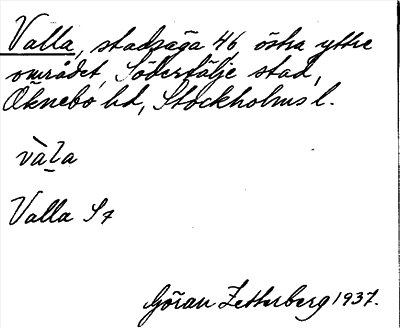 Valla, stadsäga 46, östra yttre
området, Södertälje stad,
Öknebo hd, Stockholms l.
vàla
Valla S7
Göran Zetterberg 1937.